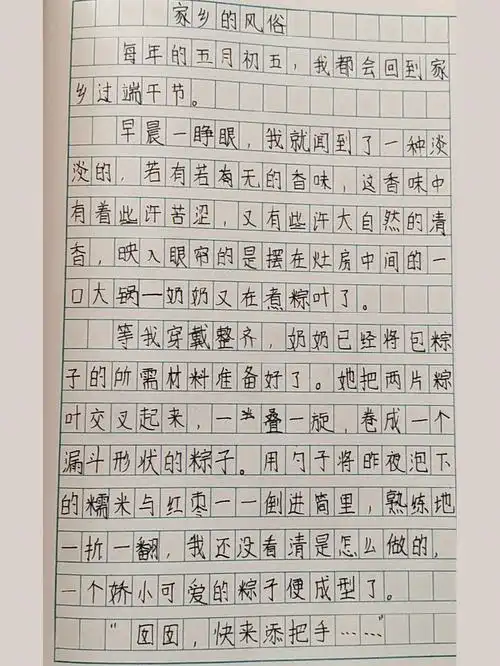 家乡的风俗
每年的五月初五，我都会回到家
乡过端午节。
早晨一睁眼，我就闻到了一种淡
淡的，若有若无的香味，这香味中
有着些许苦涩，又有些许大自然的清
香，映入眼帘的是摆在灶房中间的一
口大锅—奶奶又在煮粽叶了。
等我穿戴整齐，奶奶已经将包粽
子的所需材料准备好了。她把两片粽
叶交叉起来，一叠一旋，卷成一个
漏斗形状的粽子。用勺子将昨夜泡下
的糯米与红枣一一倒进筒里，熟练地
一折一翻，我还没看清是怎么做的，
一个娇小可爱的粽子便成型了。
“囡囡，快来添把手……”